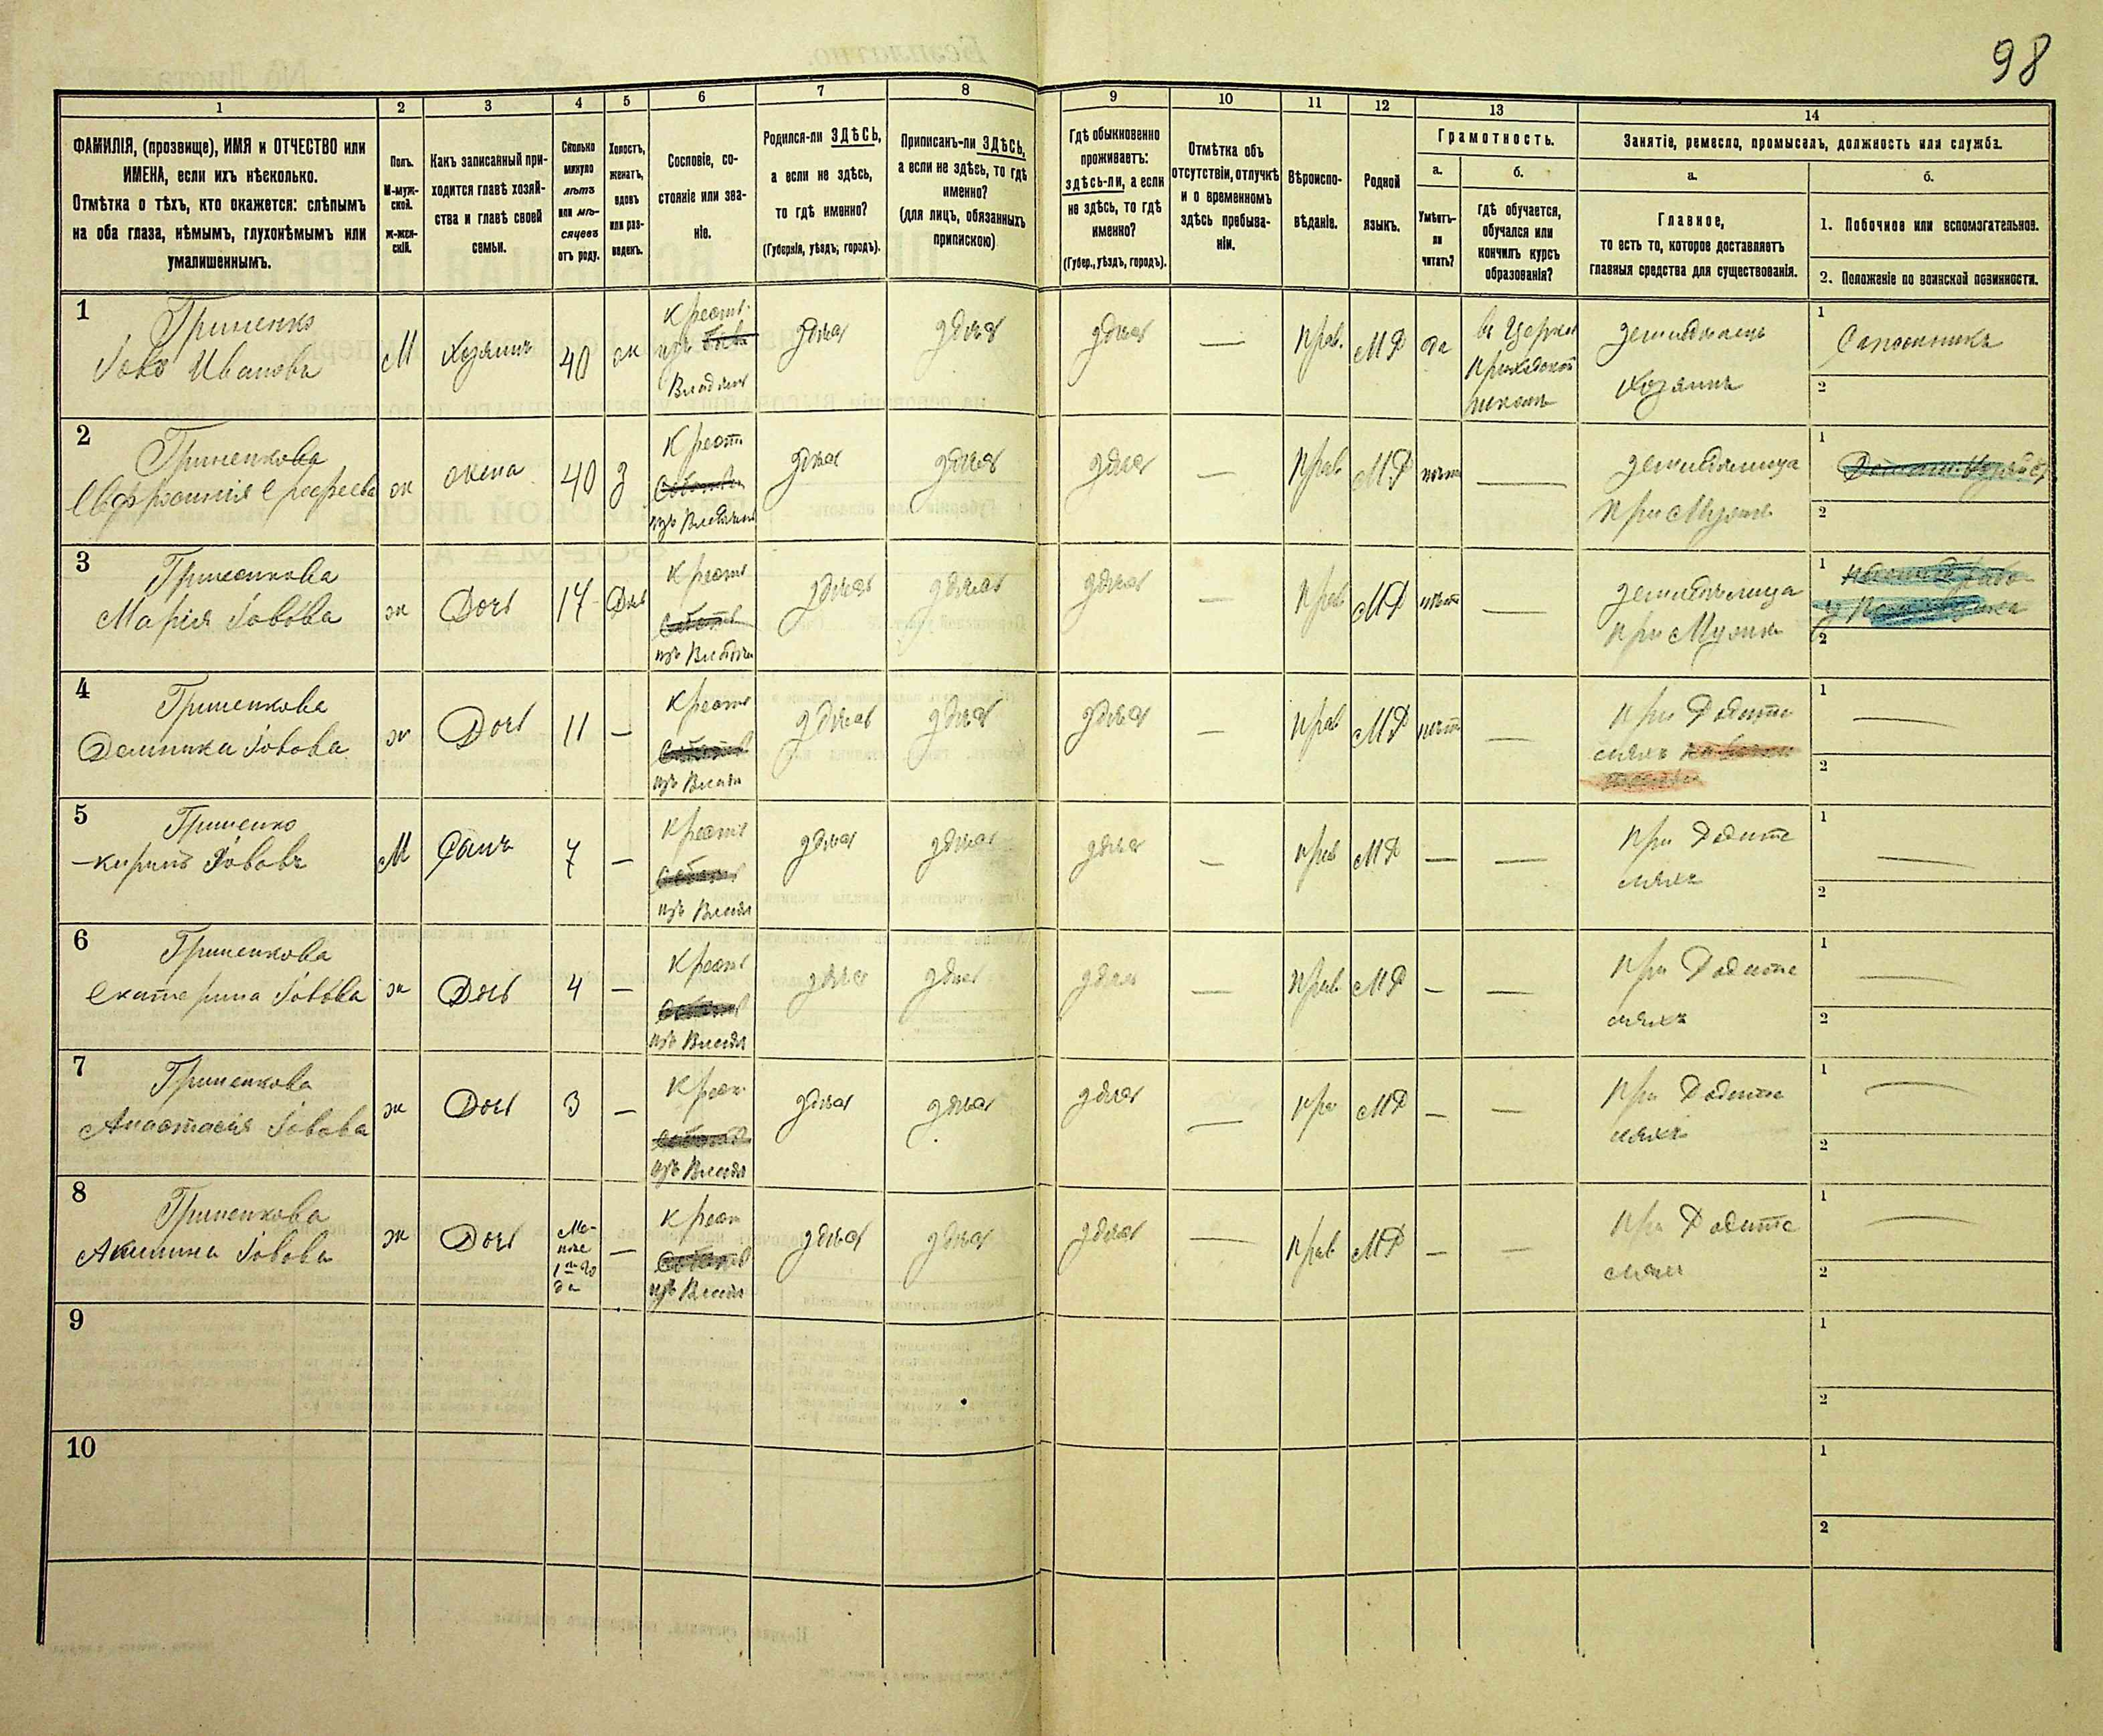 98
1
2
3
4
5
6
7
8
9
10
11
12
13
14
ФАМИЛІЯ, (прозвище), ИМЯ и ОТЧЕСТВО или
ИМЕНА, если ихъ нѣсколько.
Отмѣтка о тѣхъ, кто окажется: слѣпымъ
на оба глаза, нѣмымъ, глухонѣмымъ или
умалишеннымъ.
Полъ.
М-муж-
ской.
ж-жен-
скій.
Какъ записанный при-
ходится главѣ хозяй-
ства и главѣ своей
семьи.
Сколько
минуло
лѣтъ
или мѣ-
сяцевъ
отъ роду.
Холостъ,
женатъ,
вдовъ
или раз-
веденъ.
Сословіе, со-
стояніе или зва-
ніе.
Родился-ли ЗДѢСЬ,
а если не здѣсь,
то гдѣ именно?
(Губернія, уѣздъ, городъ).
Приписанъ-ли ЗДѢСЬ,
а если не здѣсь, то гдѣ
именно?
(для лицъ, обязанныхъ
припискою)
Гдѣ обыкновенно
проживаетъ:
здѣсь-ли, а если
не здѣсь, то гдѣ
именно?
(Губер., уѣздъ, городъ).
Отмѣтка объ
отсутствіи, отлучкѣ
и о временномъ
здѣсь пребыва-
ніи.
Вѣроиспо-
вѣданіе.
Родной
языкъ.
Грамотность.
а.
Умѣетъ-
ли
читать?
б.
гдѣ обучается,
обучался или
кончилъ курсъ
образованія?
Занятіе, ремесло, промыселъ, должность или служба.
а.
Главное,
то есть то, которое доставляетъ
главныя средства для существованія.
б.
1. Побочное или вспомогательное.
2. Положеніе по воинской повинности.
1
Гриценко
Іовъ Ивановъ
М
Хозяинъ
40
ж
Крест.
изъ
Владѣл
здѣсь
здѣсь
здѣсь
—
Прав.
МР
да
въ Церков
Приходской
школѣ
земледѣлецъ
Хозяинъ
1
Сапожникъ
2
2
Гриценкова
ж
жена
40
з
Крест
изъ Владѣл
здѣсь
здѣсь
здѣсь
—
Прав
МР
нѣтъ
—
земледѣлица
при Мужѣ
1
2
3
Гриценкова
Марія Іовова
ж
Дочь
17
Крест
изъ Владѣл
здѣсь
здѣсь
здѣсь
—
Прав
МР
нѣтъ
—
земледѣлица
при Мужѣ
1
2
4
Гриценкова
Домника Іовова
ж
Дочь
11
—
Крест
изъ Владѣл
здѣсь
здѣсь
здѣсь
—
Прав
МР
нѣтъ
—
при Родите
ляхъ
1
—
2
5
Гриценко
Кирилъ Іововъ
М
Сынъ
7
—
Крест
изъ Владѣл
здѣсь
здѣсь
здѣсь
—
Прав
МР
—
—
при Родите
ляхъ
1
—
2
6
Гриценкова
Екатерина Іовова
ж
Дочь
4
—
Крест
изъ Владѣл
здѣсь
здѣсь
здѣсь
—
Прав
МР
—
—
при Родите
ляхъ
1
—
2
7
Гриценкова
Анастасія Іовова
ж
Дочь
3
—
Крест
изъ Владѣл
здѣсь
здѣсь
здѣсь
—
Пра
МР
—
—
при Родите
ляхъ
1
—
2
8
Гриценкова
Акилина Іовова
ж
Дочь
Ме-
нѣе
1го го
да
—
Крест
изъ Владѣл
здѣсь
здѣсь
здѣсь
—
Прав
МР
—
—
при Родите
ляхъ
1
—
2
9
1
2
10
1
2